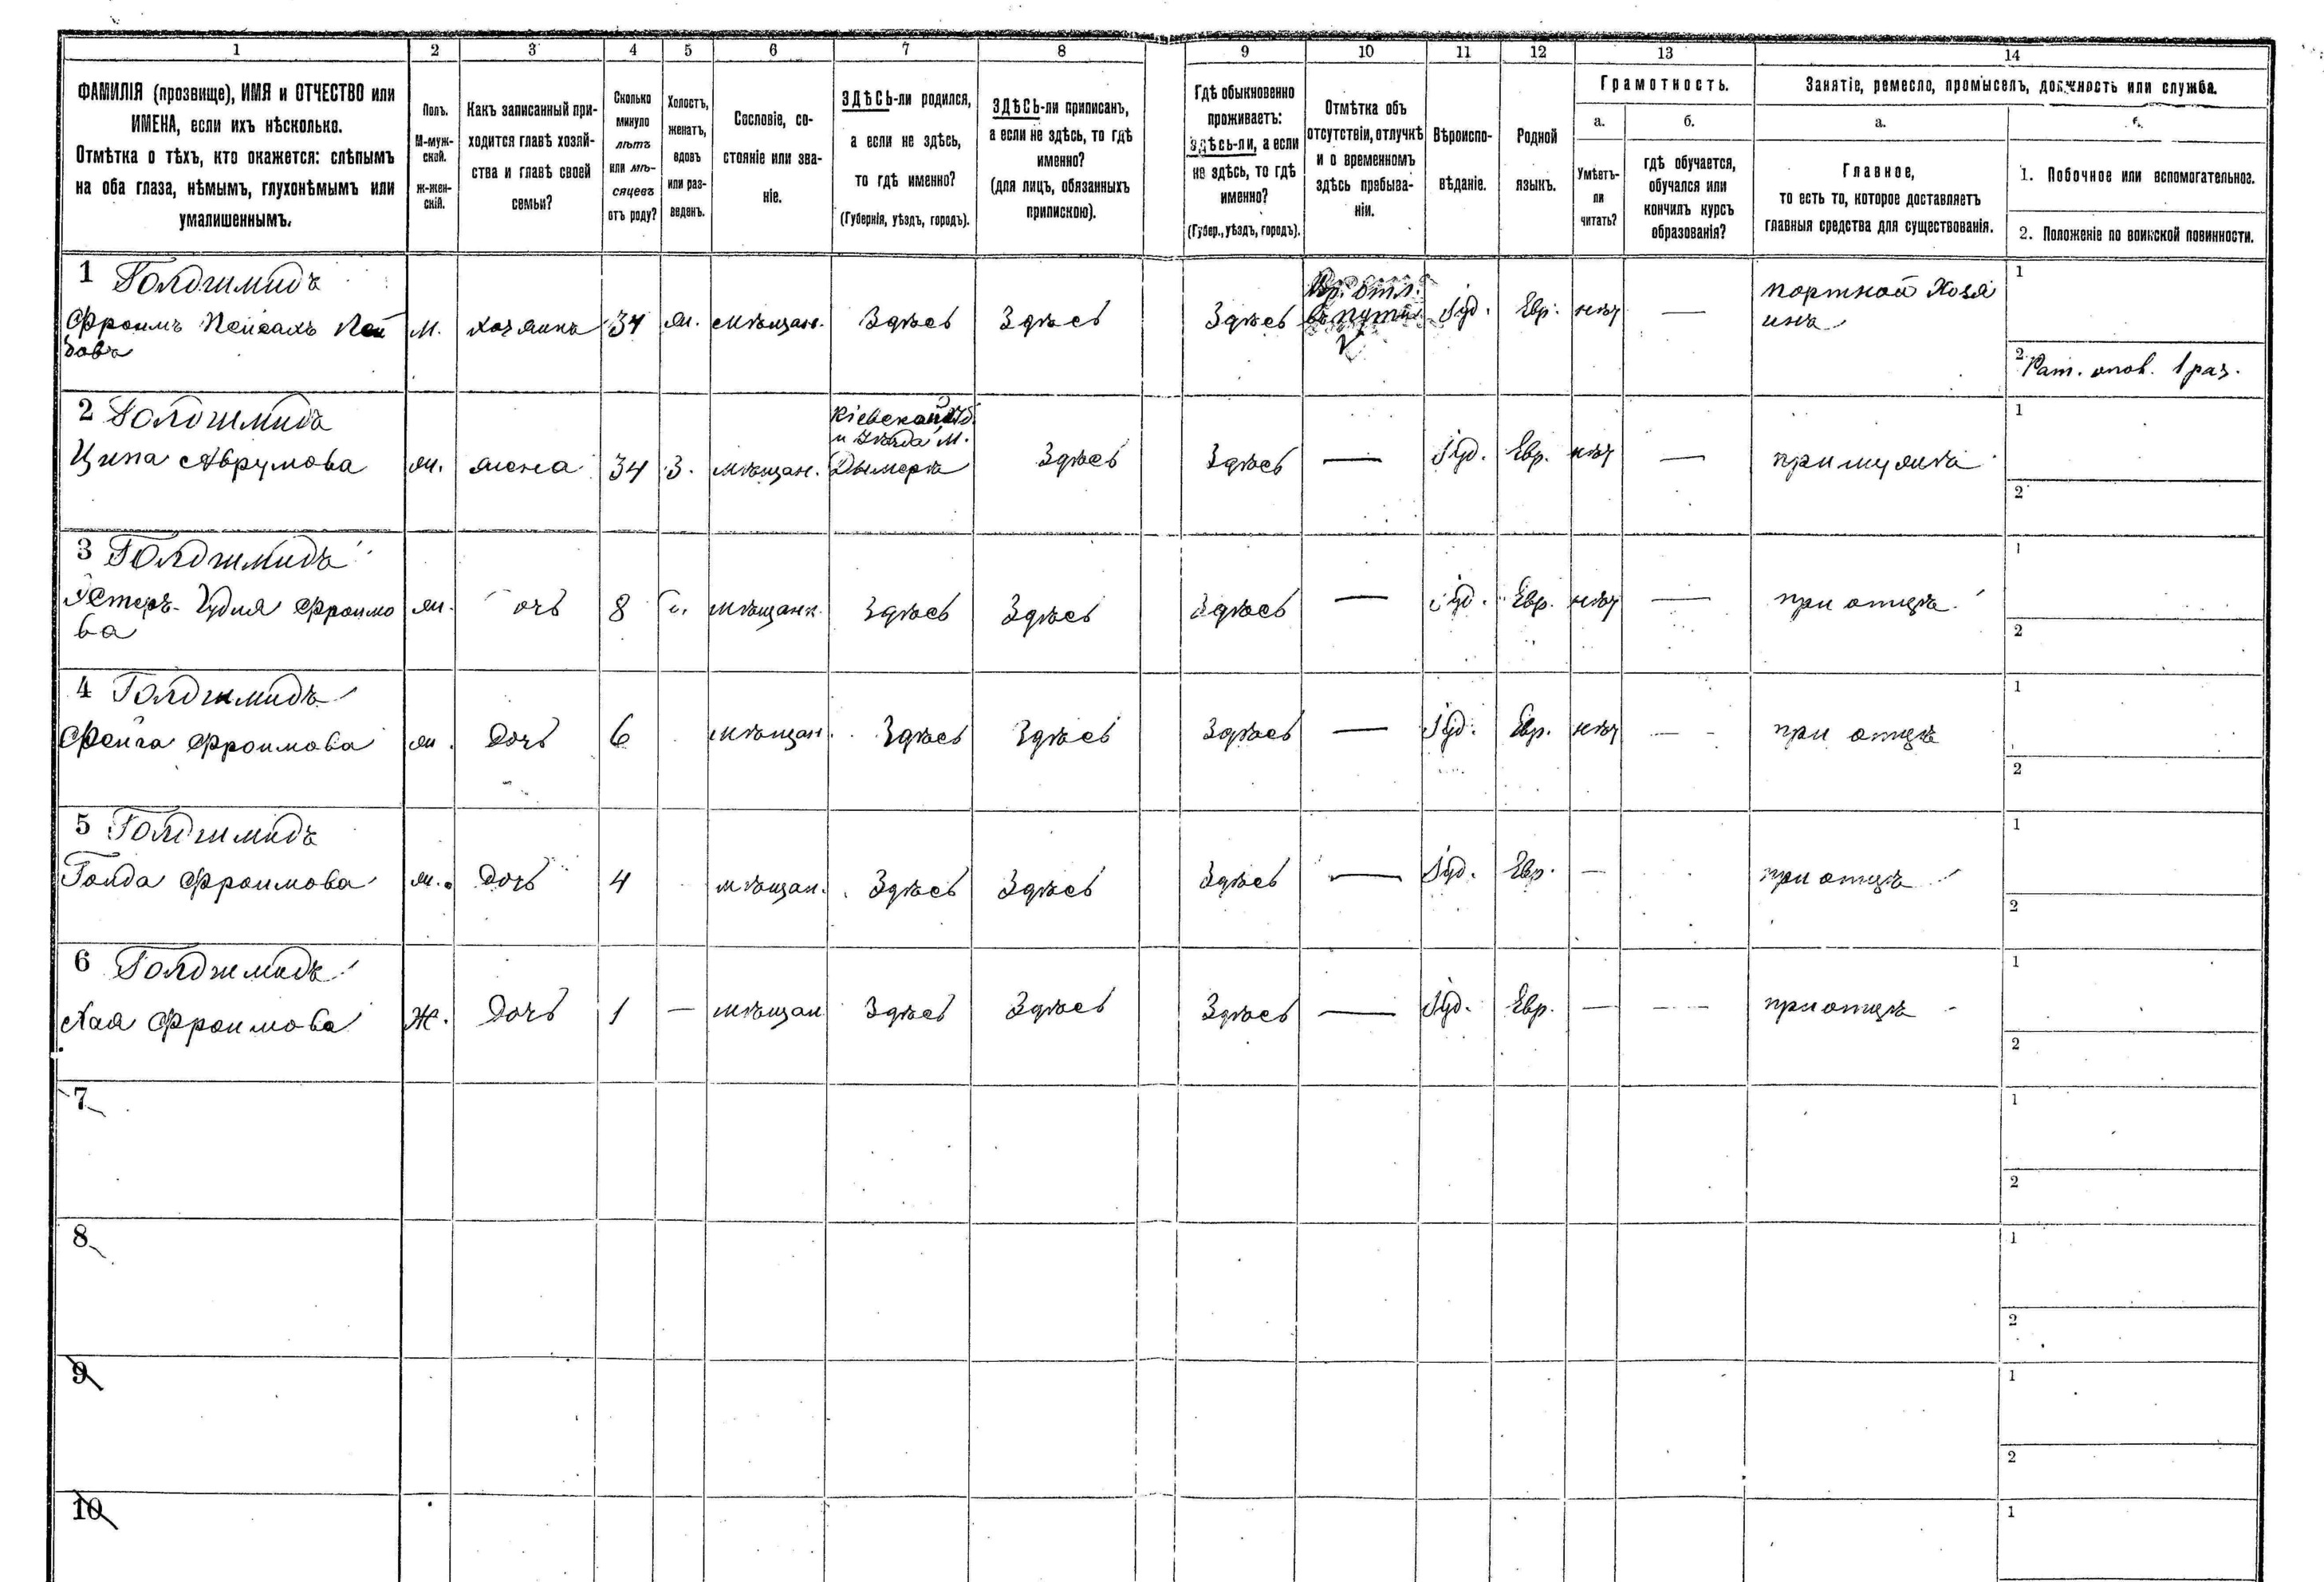 1 2 3 4 5 6 7 8 9 10 11 12 13 14
ФАМИЛІЯ (прозвище), ИМЯ и ОТЧЕСТВО или
ИМЕНА, если ихъ нѣсколько.
Отмѣтка о тѣхъ, кто окажется: слѣпымъ
на оба глаза, нѣмымъ, глухонѣмымъ или
умалишеннымъ.
Полъ.
М-муж-
ской.
ж-жен-
скій.
Какъ записанный при-
ходится главѣ хозяй-
ства и главѣ своей
семьи?
Сколько
минуло
лѣтъ
или мѣ-
сяцевъ
отъ роду?
Холостъ,
женатъ,
вдовъ
или раз-
веденъ.
Сословіе, со-
стояніе или зва-
ніе.
ЗДѢСЬ-ли родился,
а если не здѣсь,
то гдѣ именно?
(Губернія, уѣздъ, городъ).
ЗДѢСЬ-ли приписанъ,
а если не здѣсь, то гдѣ
именно?
(для лицъ, обязанныхъ
припискою).
Гдѣ обыкновенно
проживаетъ:
здѣсь-ли, а если
не здѣсь, то гдѣ
именно?
(Губер., уѣздъ, городъ).
Отмѣтка объ
отсутствіи, отлучкѣ
и о временномъ
здѣсь пребыва-
ніи.
Вѣроиспо-
вѣданіе.
Родной
языкъ.
Грамотность.
а.
Умѣетъ-
ли
читать?
б.
гдѣ обучается,
обучался или
кончилъ курсъ
образованія?
Занятіе, ремесло, промыселъ, должность или служба.
а.
Главное,
то есть то, которое доставляетъ
главныя средства для существованія.
1. Побочное или вспомогательное.
2. Положеніе по воинской повинности.
1 Голдшмидъ
Фроимъ Пейсахъ
М. хозяинъ 34 ж. мѣщан. Здѣсь Здѣсь Здѣсь
Вр. отл.
въ пути
Іуд. Евр. нѣт —
портной Хозя
инъ
1
2 Рат. опол. 1 раз.
2 Голдшмидъ
Ципа Аврумова
ж. жена 34 З. мѣщан.
Кіевской Губ.
и уѣзда М.
Дымеръ
Здѣсь Здѣсь — Іуд. Евр. нѣт — при мужѣ
1
2
3 Голдшмидъ
Эстеръ-Гудля Фроимо
ва
ж. очь 8 мѣщанк. Здѣсь Здѣсь Здѣсь — Іуд. Евр. нѣт — при отцѣ
1
2
4 Голдшмидъ
Фейга Фроимова
ж. Дочь 6 мѣщан. Здѣсь Здѣсь Здѣсь — Іуд. Евр. нѣт — при отцѣ
1
2
5 Голдшмидъ
Голда Фроимова
ж. Дочь 4 мѣщан. Здѣсь Здѣсь Здѣсь — Іуд. Евр. — при отцѣ
1
2
6 Голдшмидъ
Хая Фроимова
Ж. Дочь 1 — мѣщан Здѣсь Здѣсь Здѣсь — Іуд. Евр. — — при отцѣ
1
2
7
1
2
8
1
2
9
1
2
10
1